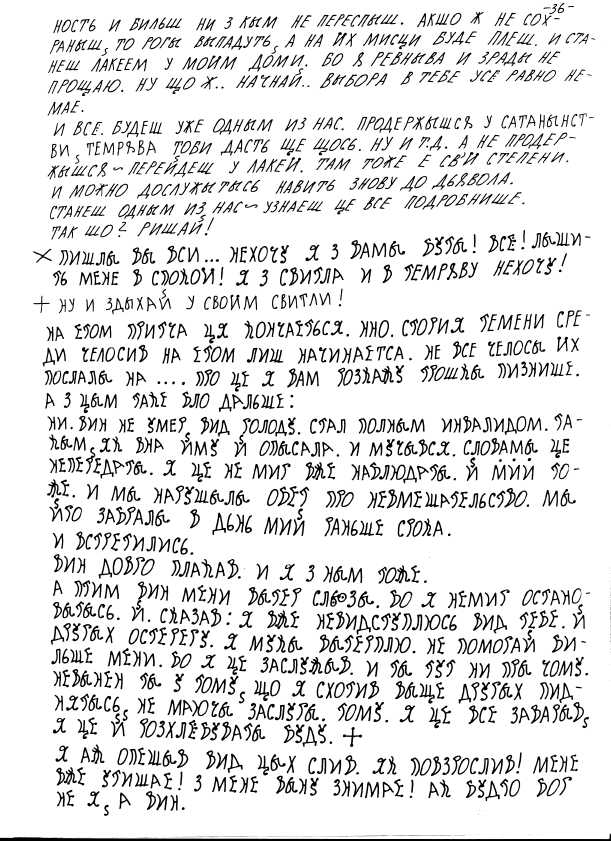 -36-
НОСТЬ И БИЛЬШ НИ З КЫМ НЕ ПЕРЕСПЫШ. АКШО Ж НЕ СОХ-
РАНЫШ, ТО РОГЫ ВЫПАДУТЬ, А НА ЙХ МИСЦИ БУДЕ ПЛЕШ. И СТА-
НЕШ ЛАКЕЕМ У МОЙМ ДОМИ. БО Я РЕВНЫВА И ЗРАДЫ НЕ
ПРОЩАЮ. НУ ЩО Ж.. НАЧНАЙ.. ВЫБОРА В ТЕБЕ УСЕ РАВНО НЕ-
МАЕ.
И ВСЕ. БУДЕШ УЖЕ ОДНЫМ ИЗ НАС. ПРОДЕРЖЫШСЯ У САТАНЫНСТ-
ВИ, ТЕМРЯВА ТОБИ ДАСТЬ ЩЕ ЩОСЬ. НУ И Т.Д. А НЕ ПРОДЕР-
ЖЫШСЯ ~ ПЕРЕЙДЕШ У ЛАКЕЙ. ТАМ ТОЖЕ Е СВИ СТЕПЕНИ.
И МОЖНО ДОСЛУЖЫТЫСЬ НАВИТЬ ЗНОВУ ДО ДЬЯВОЛА.
СТАНЕШ ОДНЫМ ИЗ НАС ~ УЗНАЕШ ЦЕ ВСЕ ПОДРОБНИШЕ.
ТАК ШО? РИШАЙ!
× ПИШЛЫ ВЫ ВСИ... НЕХОЧУ Я З ВАМЫ БУТЫ! ВСЕ! ЛЫШИ-
ТЬ МЕНЕ В СПОКОЙ! Я З СВИТЛА И В ТЕМРЯВУ НЕХОЧУ!
+ НУ И ЗДЫХАЙ У СВОЙМ СВИТЛИ!
НА ЕТОМ ПРИТЧА ЦЯ КОНЧАЕТЬСЯ. ННО. СТОРИЯ ТЕМЕНИ СРЕ-
ДИ ЧЕЛОСИВ НА ЕТОМ ЛИШ НАЧИНАЕТСА. НЕ ВСЕ ЧЕЛОСЫ ИХ
ПОСЛАЛЫ НА .... ПРО ЦЕ Я ВАМ РОЗКАЖУ ТРОШКЫ ПИЗНИШЕ.
А З ЦЫМ ТАКЕ БЛО ДАЛЬШЕ:
НИ. ВИН НЕ УМЕР, ВИД ГОЛОДУ. СТАЛ ПОЛНЫМ ИНВАЛИДОМ. ТА-
КЫМ, ЯК ВНА ЙМУ Й ОПЫСАЛА. И МУЧЫВСЯ. СЛОВАМЫ ЦЕ
НЕПЕРЕДАТЫ. Я ЦЕ НЕ МИГ ВЖЕ НАБЛЮДАТЫ. Й МИЙ ТО-
ЖЕ. И МЫ НАРУШЫЛЫ ОБЕТ ПРО НЕВМЕШАТЕЛЬСТВО. МЫ
ЙГО ЗАБРАЛЫ В ДЬНЬ МИЙ РАНЬШЕ СРОКА.
И ВСТРЕТИЛИСЬ.
ВИН ДОВГО ПЛАКАВ. И Я З НЫМ ТОЖЕ.
А ПТИМ ВИН МЕНИ ВЫТЕР СЛЬОЗЫ. БО Я НЕМИГ ОСТАНО-
ВЫТЫСЬ. Й. СКАЗАВ: Я ВЖЕ НЕВИДСТУПЛЮСЬ ВИД ТЕБЕ. Й
ДРУГЫХ ОСТЕРЕГУ. Я МУКЫ ВЫТЕРПЛЮ. НЕ ПОМОГАЙ БИ-
ЛЬШЕ МЕНИ. БО Я ЦЕ ЗАСЛУЖЫВ. И ТЫ ТУТ НИ ПРЫ ЧОМУ.
НЕВЫНЕН ТЫ У ТОМУ, ЩО Я СХОТИВ ВЫЩЕ ДРУГЫХ ПИД-
НЯТЫСЬ, НЕ МАЮЧЫ ЗАСЛУГЫ. ТОМУ. Я ЦЕ ВСЕ ЗАВАРЫВ,
Я ЦЕ Й РОЗХЛЕБУВАТЫ БУДУ. +
Я АЖ ОПЕШЫВ ВИД ЦЫХ СЛИВ. ЯК ПОВЗРОСЛИВ! МЕНЕ
ВЖЕ УТИШАЕ! З МЕНЕ ВЫНУ ЗНИМАЕ! АЖ БУДТО БОГ
НЕ Я, А ВИН.